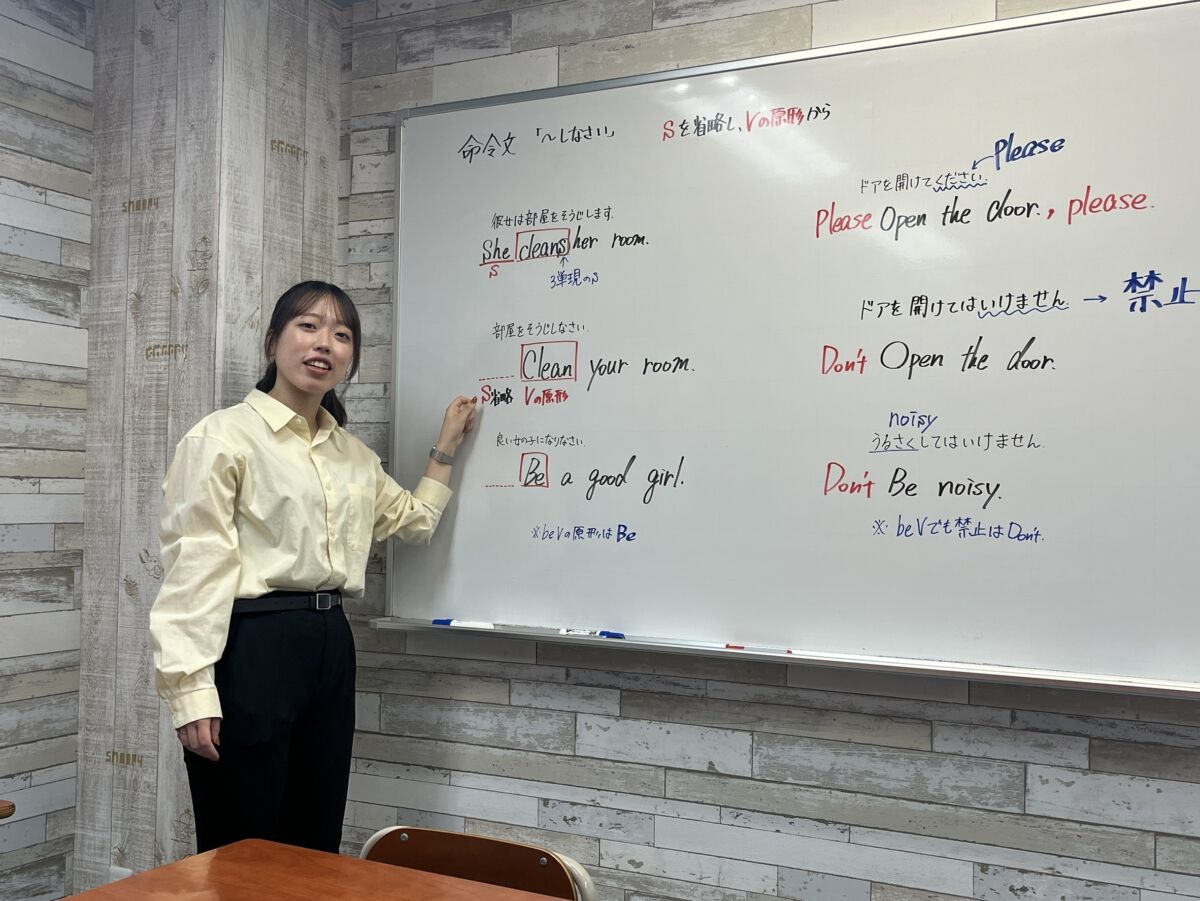 命令文 「~しなさい」 Sを省略し、Vの原形から
彼女は部屋をそうじします.
She cleans her room.
S
3単現のs
部屋をそうじしなさい.
Clean your room.
S省略 Vの原形
良い女の子になりなさい.
Be a good girl.
※beVの原形はBe
Please
ドアを開けてください.
Please Open the door., please.
ドアを開けてはいけません. → 禁止
Don't Open the door.
noisy
うるさくしてはいけません.
Don't Be noisy.
※ beVでも禁止はDon't.
snoopy
snoopy
snoopy
snoopy